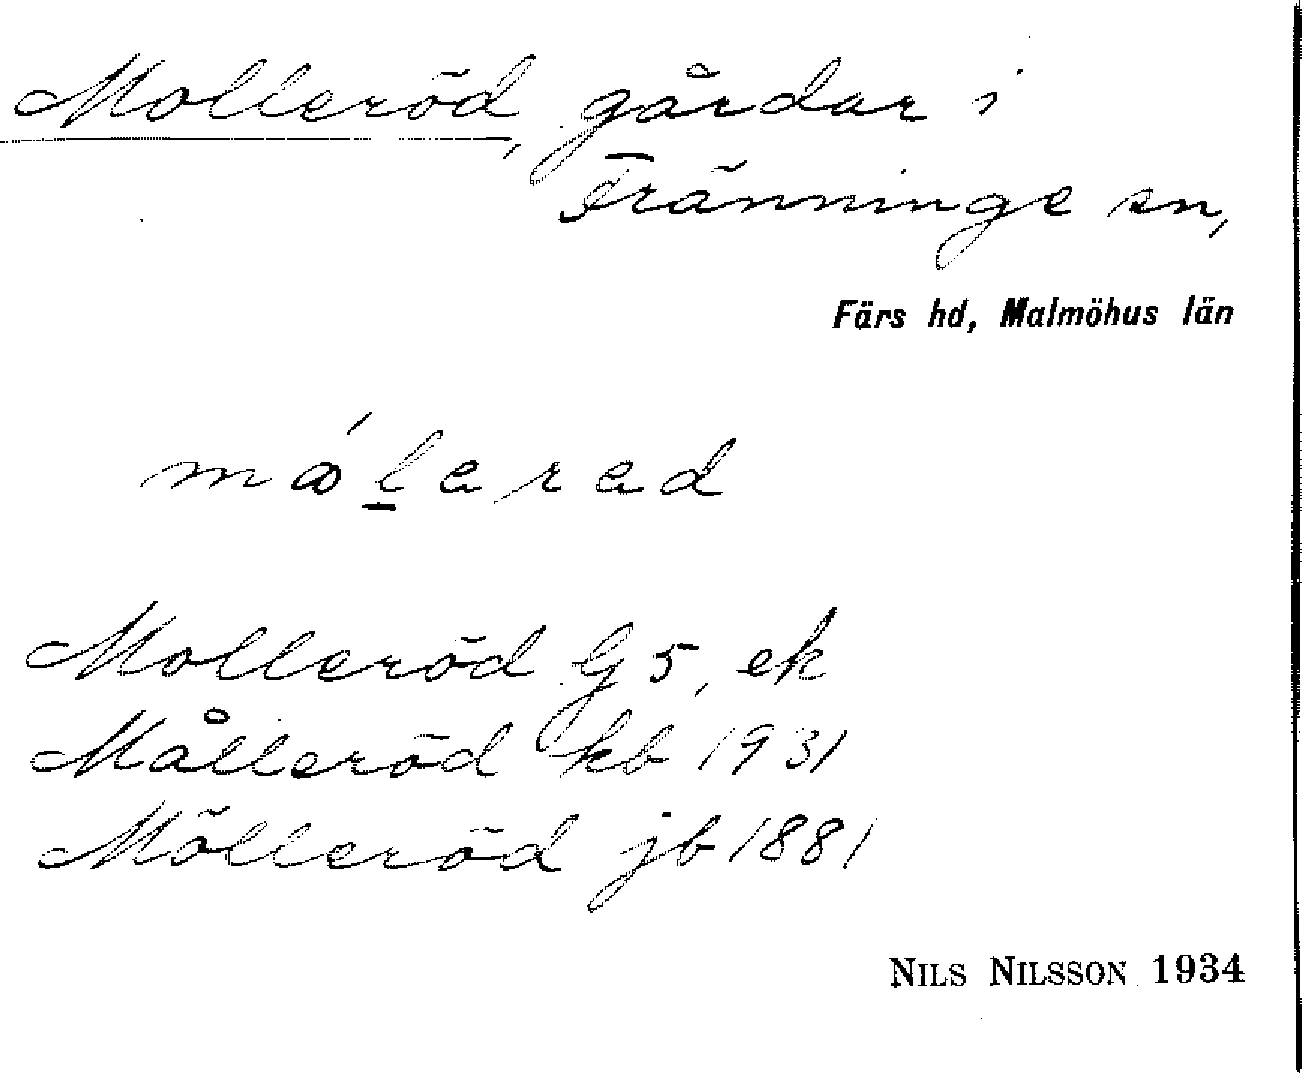 Molleröd, gårdar i
Tränninge sn,
Färs hd, Malmöhus län
Molleröd G 5, ek
Målleröd kb 1931
Mölleröd jb 1881
NILS NILSSON 1934